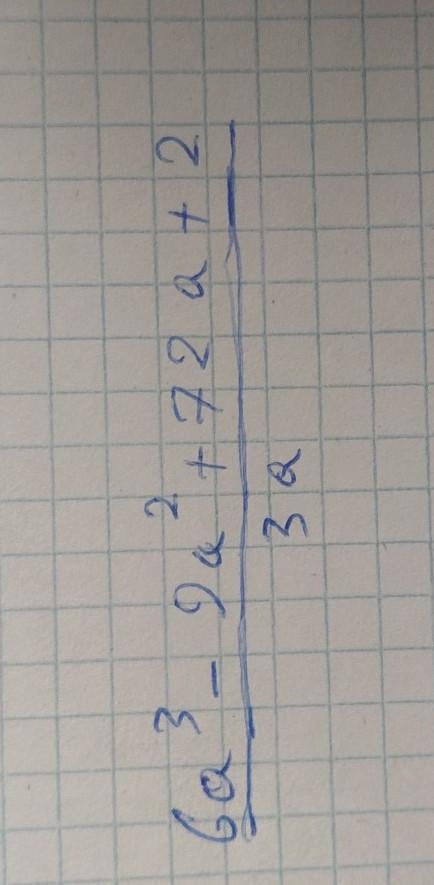 6a³ - 9a² + 72a + 2
3a